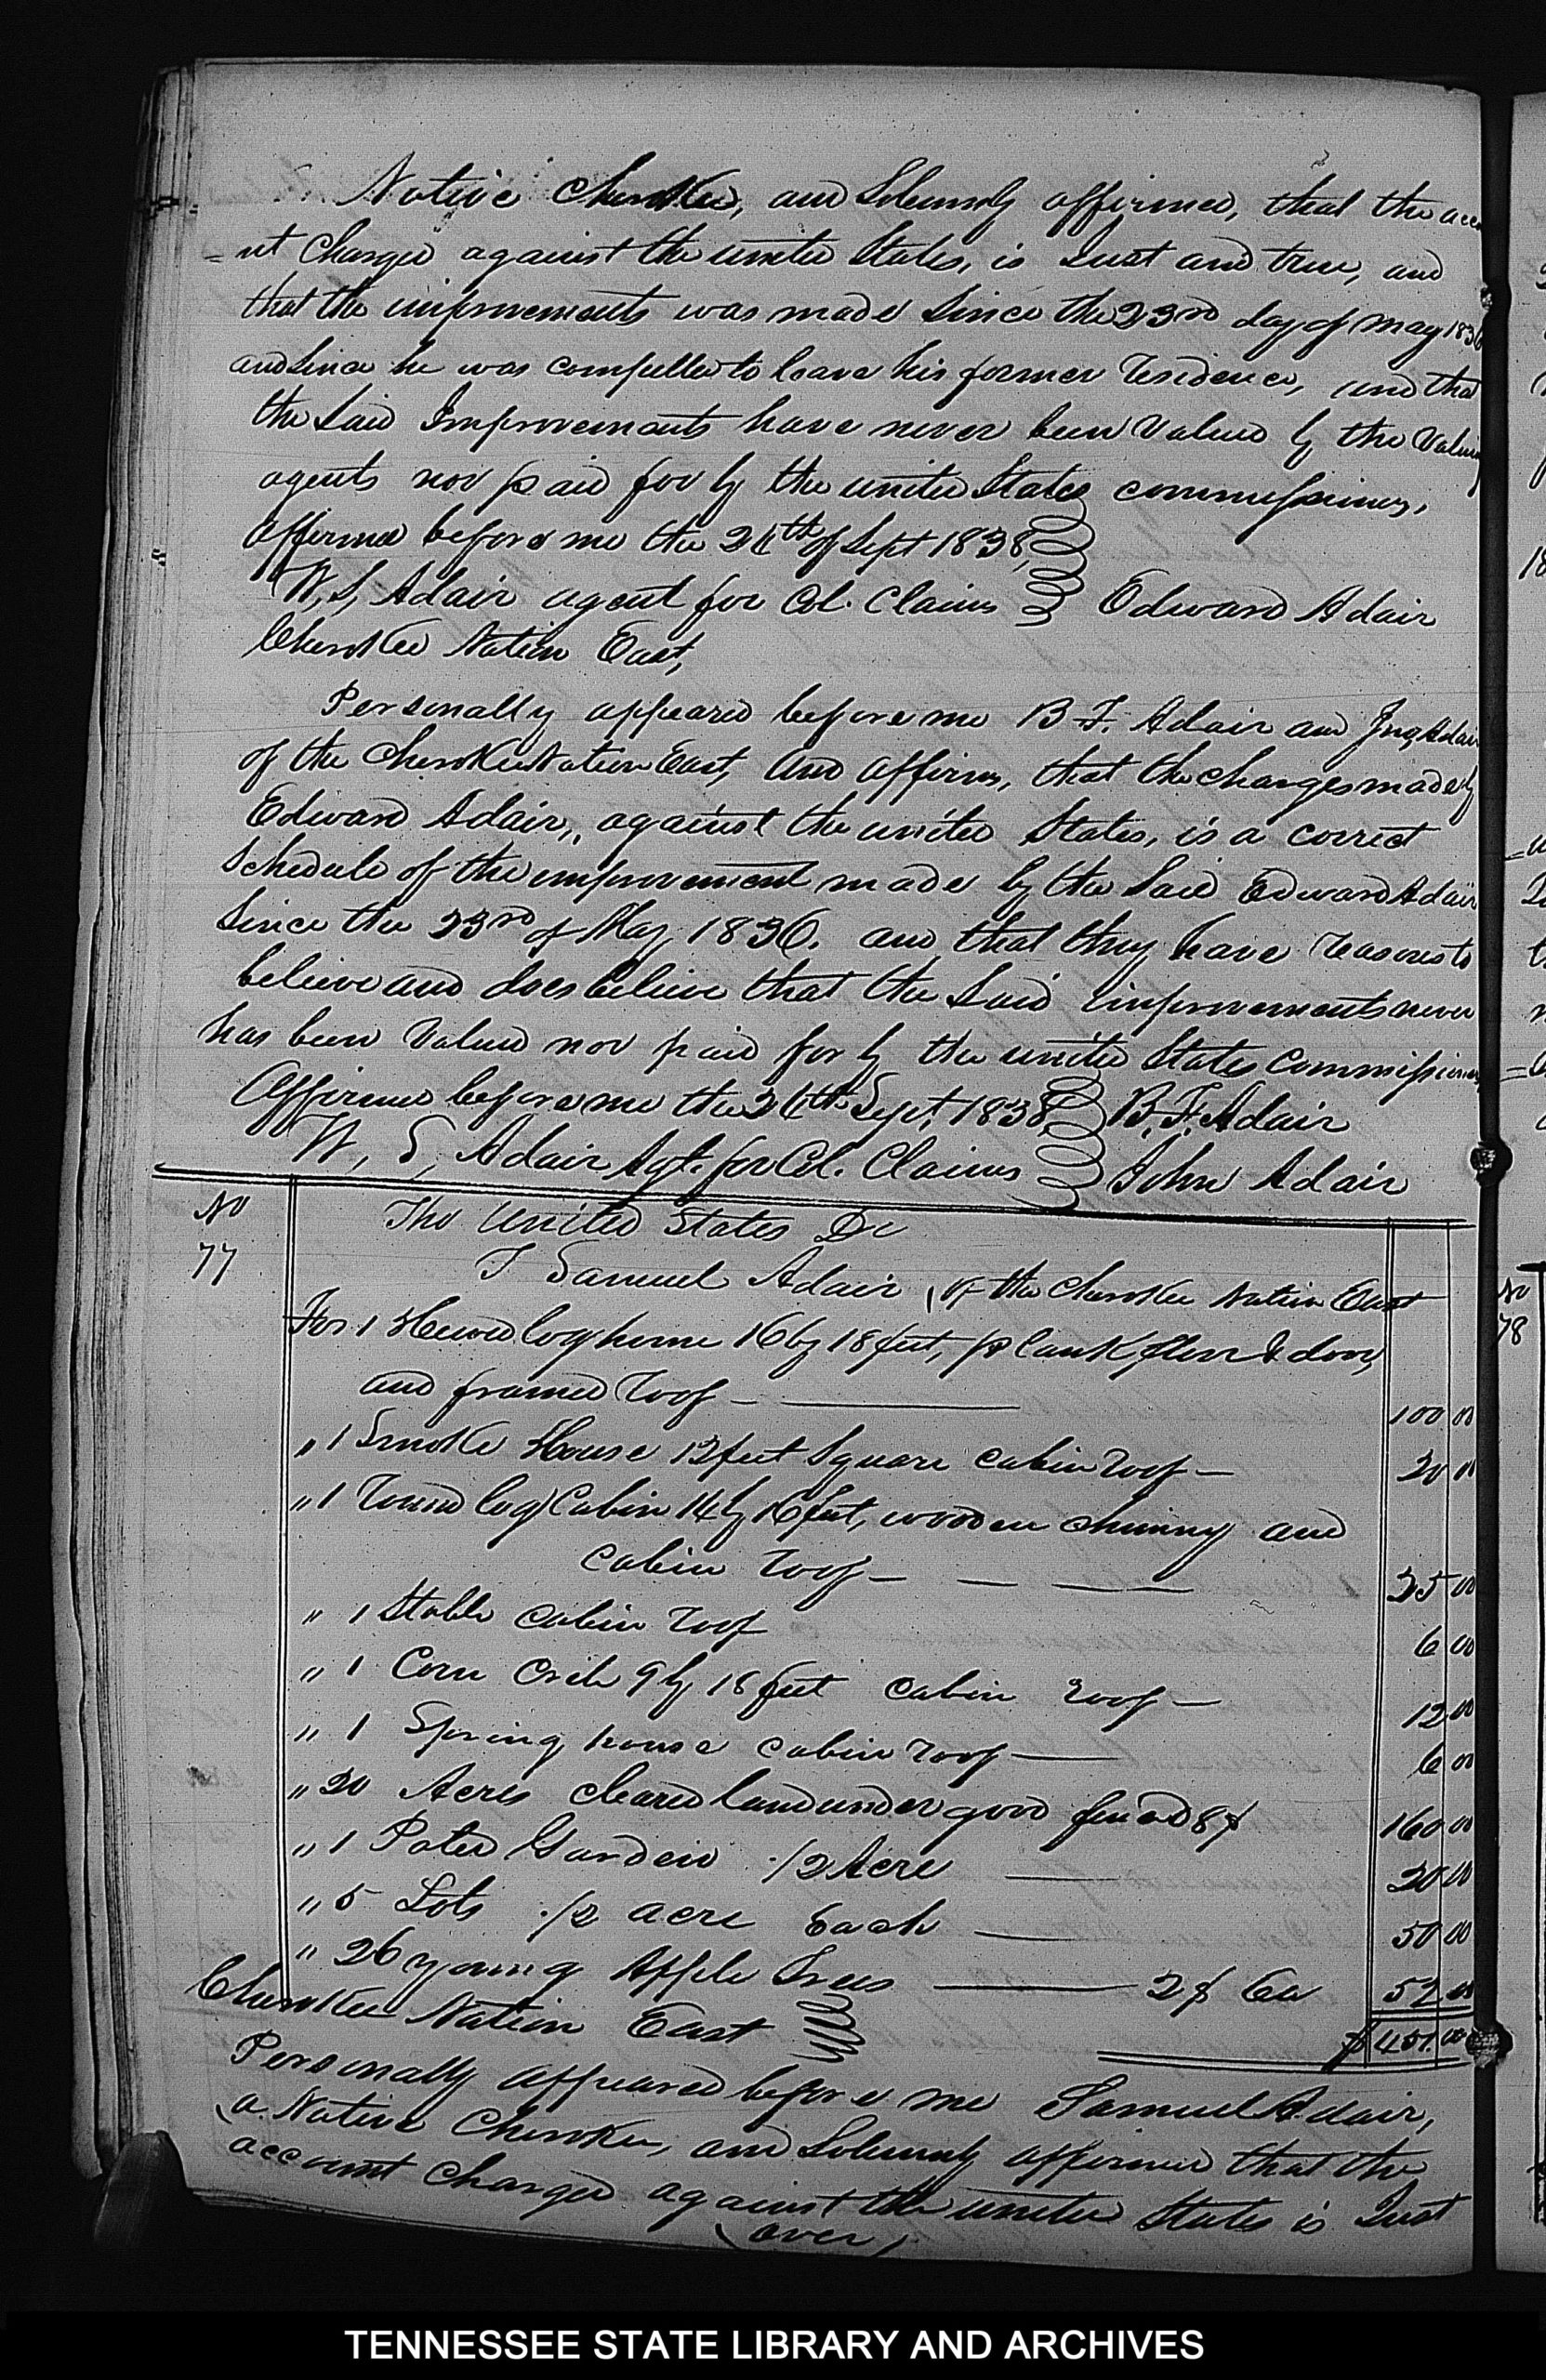 Native Cherokee, and Solemnly affirmed, that the acco
=nt Charged against the united States, is Just and true, and
that the improvements was made Since the 23rd day of May 1836
and Since he was compelled to leave his former residence, and that
the Said Improvements have never been Valued by the Valuing
agents nor paid for by the united States commissioners,
affirmed before me the 24th of Sept 1838,
W, S, Adair agent for Col. Claims Edward Adair
Cherokee Nation East,
Personally appeared before me B. F. Adair and Jno, Adair
of the Cherokee Nation East, and affirms, that the charges made by
Edward Adair, against the united States, is a correct
Schedule of the improvement made by the Said Edward Adair
Since the 23rd of May, 1836. and that they have reasons to
believe and does believe that the Said improvements never
has been Valued nor paid for by the united States Commissioners
Affirmed before me the 24th Sept, 1838 B. F. Adair
W, S, Adair Agt. for Col. Claims John Adair
No
77
The United States Dr
To Samuel Adair, of the Cherokee Nation East
For 1 Hewed log house 16 by 18 feet, plank floor & door,
and framed roof — 100 00
" 1 Smoke House 12 feet Square cabin roof — 20 00
" 1 round log Cabin 14 by 16 feet, wooden chimney and
cabin roof — 25 00
" 1 Stable cabin roof 6 00
" 1 Corn Crib 9 by 18 feet cabin roof — 12 00
" 1 Spring house cabin roof — 6 00
" 20 Acres cleared land under good fence 8$ 160 00
" 1 Pated Garden 1/2 Acre — 20 00
" 5 Lots 1/2 acre Each — 50 00
" 26 young Apple Trees — 2$ Ea 52 00
Cherokee Nation East $ 451.00
Personally appeared before me Samuel Adair,
a Native Cherokee, and Solemnly affirmed that the
account charged against the united States is Just
(over)
No
78
TENNESSEE STATE LIBRARY AND ARCHIVES